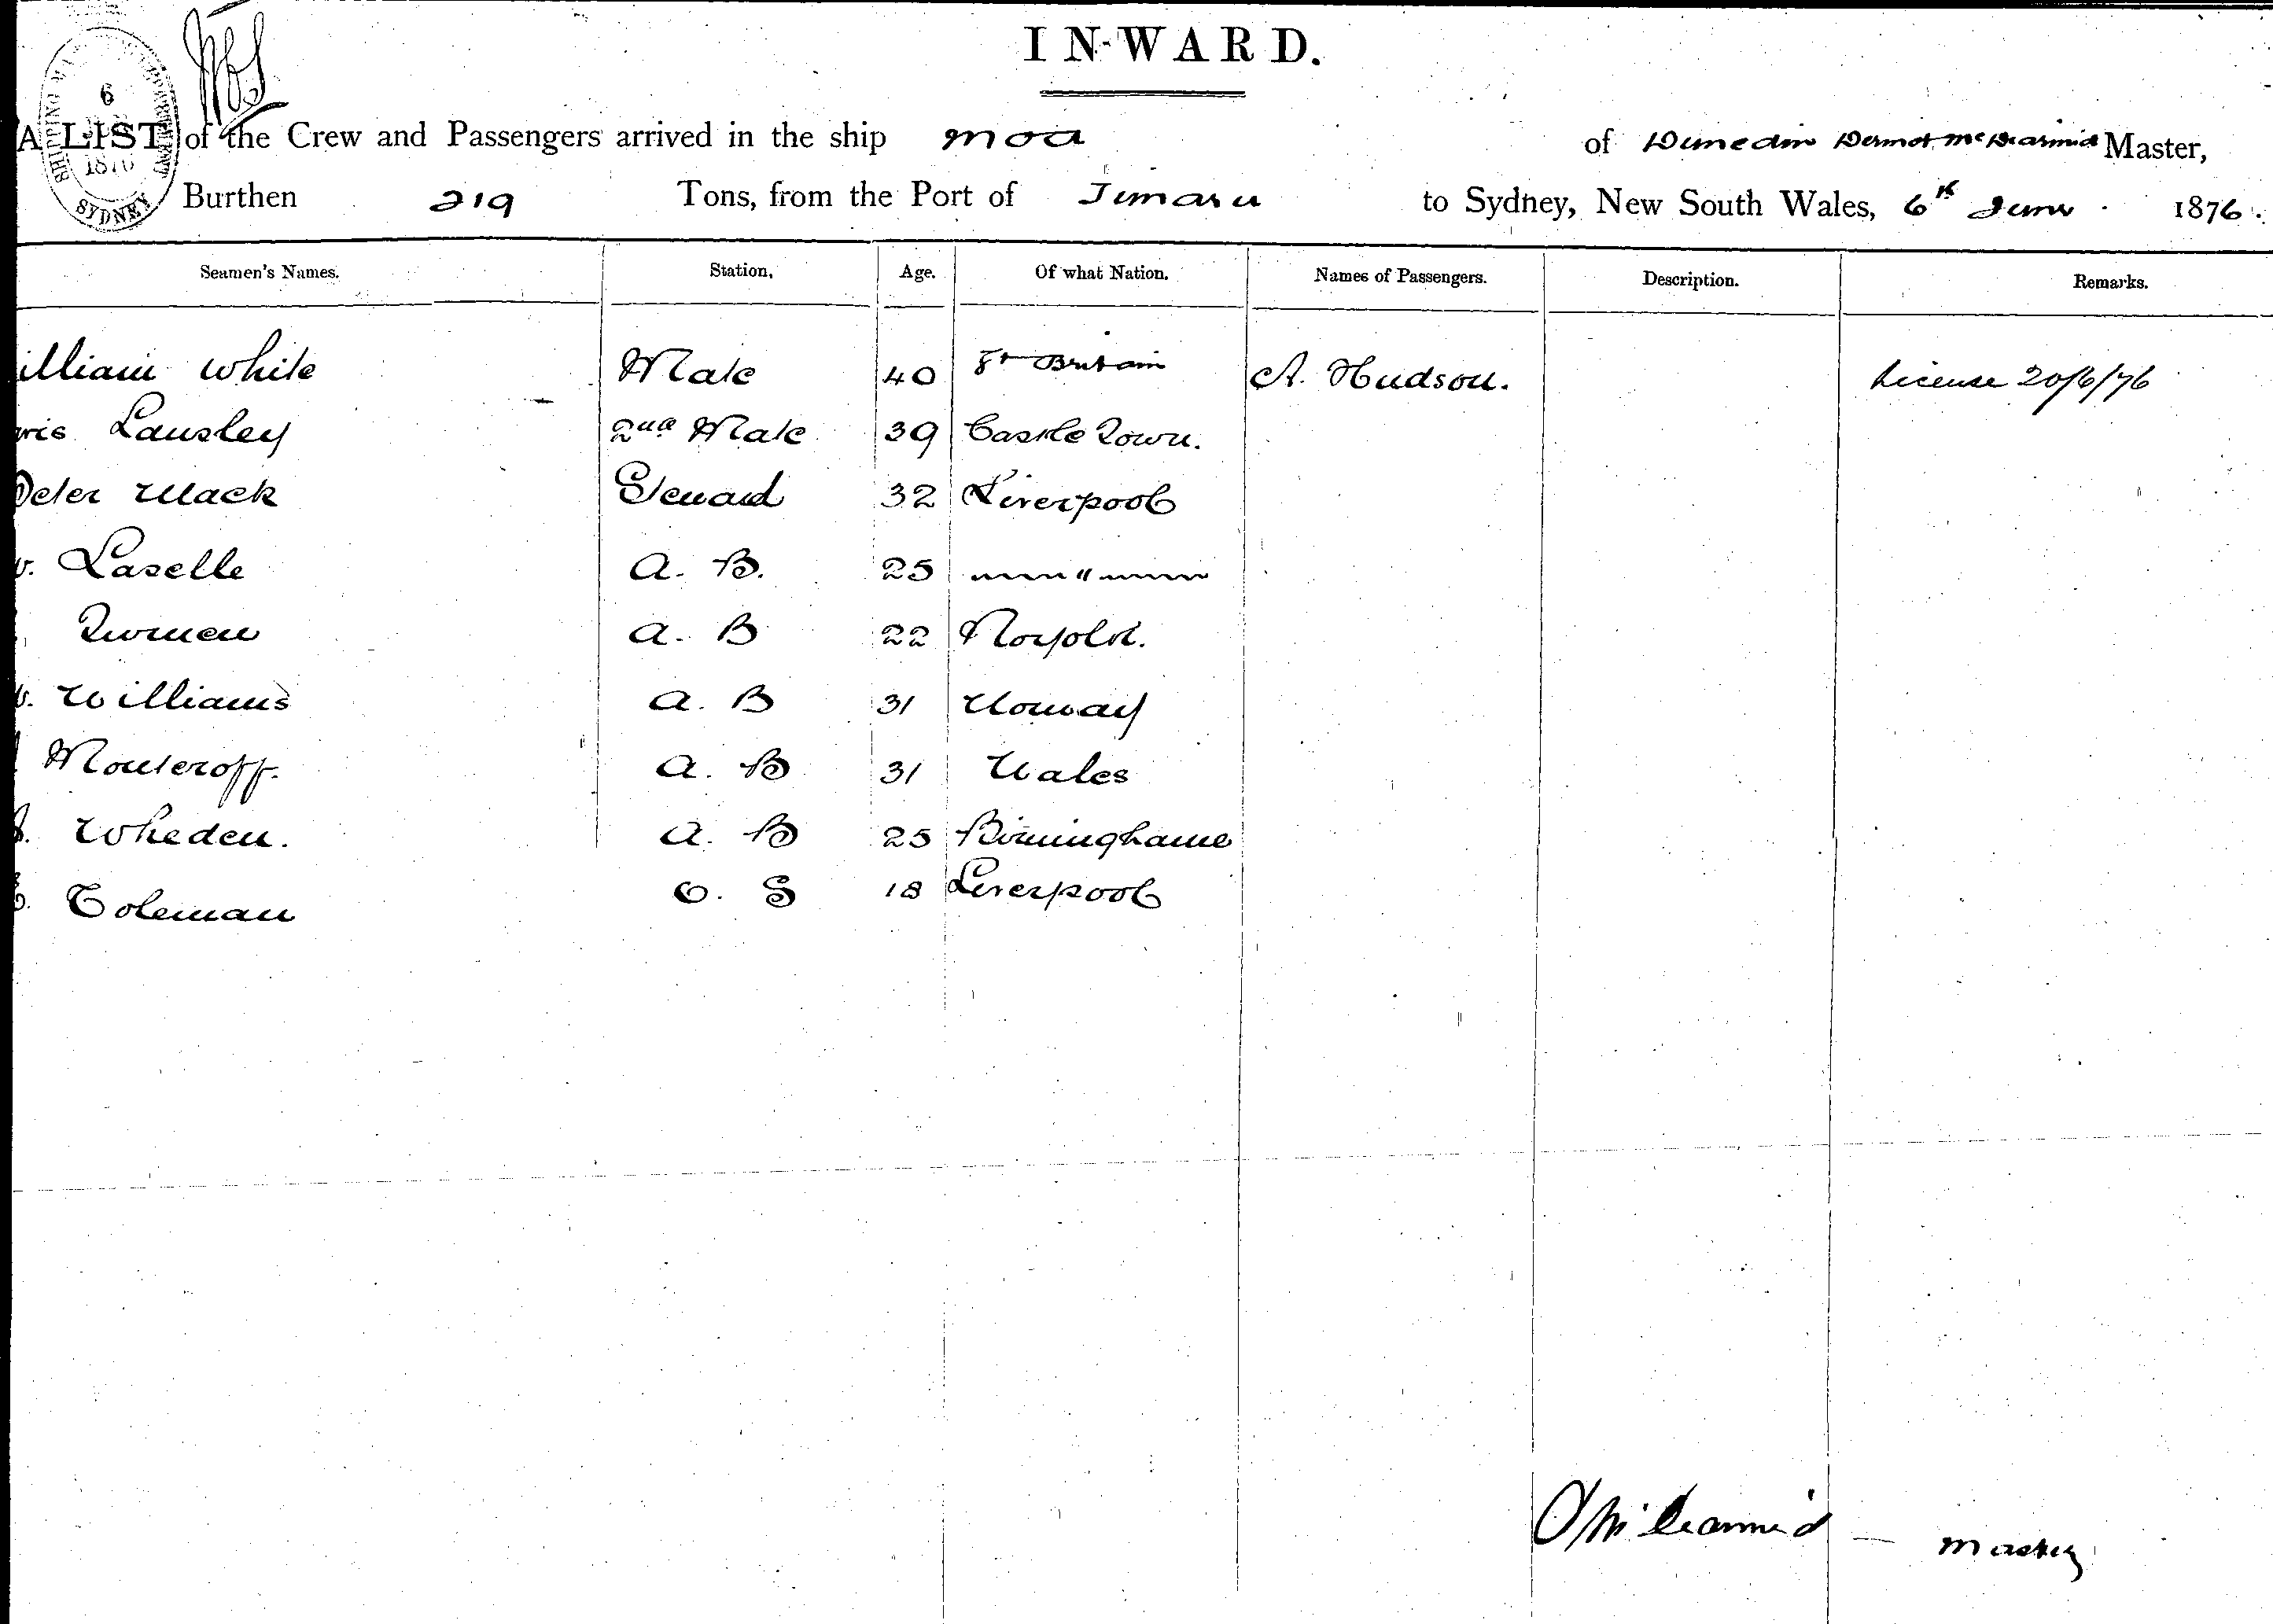 IN-WARD.
6
1876
SYDNEY
A LIST of the Crew and Passengers arrived in the ship Moa of Dunedin Dermot McDiarmid Master,
Burthen 219 Tons, from the Port of Timaru to Sydney, New South Wales, 6th June 1876.
Seamen's Names. Station. Age. Of what Nation. Names of Passengers. Description. Remarks.
illiam White Mate 40 Gt Britain A. Hudson. License 20/6/76
Lansley 2nd Mate 39 Castle Town.
Peter Mack Steward 32 Liverpool
Laselle A. B. 25 "
A. B 22 Norfolk.
Williams A. B 31 Norway
A. B 31 Wales
Wheden. A. B 25 Birminghame
Coleman O. S 18 Liverpool
Master